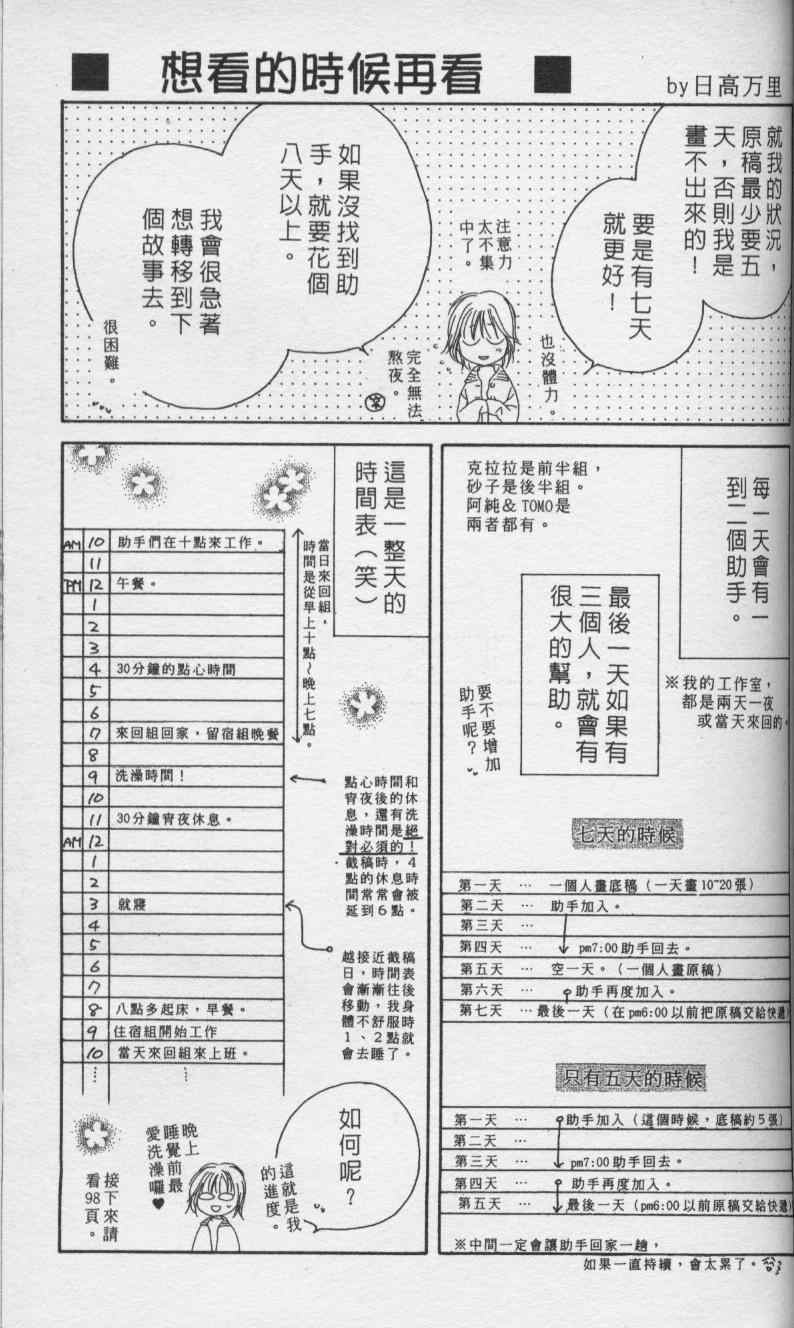 想看的時候再看
by日高万里
就我的狀況，
原稿最少要五
天，否則我是
畫不出來的！
要是有七天
就更好！
注意力
太不集
中了。
也沒體力。
完全無法
熬夜。
如果沒找到助
手，就要花個
八天以上。
我會很急著
想轉移到下
個故事去。
很困難。
每一天會有一
到二個助手。
※我的工作室，
都是兩天一夜
或當天來回的。
克拉拉是前半組，
砂子是後半組。
阿純& TOMO是
兩者都有。
最後一天如果有
三個人，就會有
很大的幫助。
要不要增加
助手呢？
七天的時候
第一天 … 一個人畫底稿（一天畫10~20張）
第二天 … 助手加入。
第三天 …
第四天 … pm7:00助手回去。
第五天 … 空一天。（一個人畫原稿）
第六天 … 助手再度加入。
第七天 … 最後一天（在pm6:00以前把原稿交給快遞）
只有五天的時候
第一天 … 助手加入（這個時候，底稿約5張）
第二天 …
第三天 … pm7:00助手回去。
第四天 … 助手再度加入。
第五天 … 最後一天（pm6:00以前原稿交給快遞）
※中間一定會讓助手回家一趟，
如果一直持續，會太累了。
這是一整天的
時間表（笑）
當日來回組，
時間是從早上十點~晚上七點。
AM 10 助手們在十點來工作。
11
PM 12 午餐。
1
2
3
4 30分鐘的點心時間
5
6
7 來回組回家，留宿組晚餐
8
9 洗澡時間！
10
11 30分鐘宵夜休息。
AM 12
1
2
3 就寢
4
5
6
7
8 八點多起床，早餐。
9 住宿組開始工作
10 當天來回組來上班。
⋮ ⋮
點心時間和
宵夜後的休
息，還有洗
澡時間是絕
對必須的！
截稿時，4
點的休息時
間常常會被
延到6點。
越接近截稿
日，時間表
會漸漸往後
移動，我身
體不舒服時
1、2點就
會去睡了。
如何呢？
這就是我
的進度。
晚上
睡覺前最
愛洗澡囉♥
接下來請
看98頁。